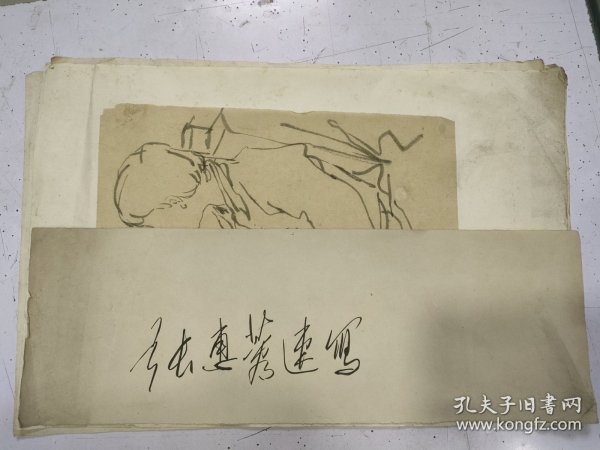 张惠蓉速写
孔夫子旧書网
www.kongfz.com